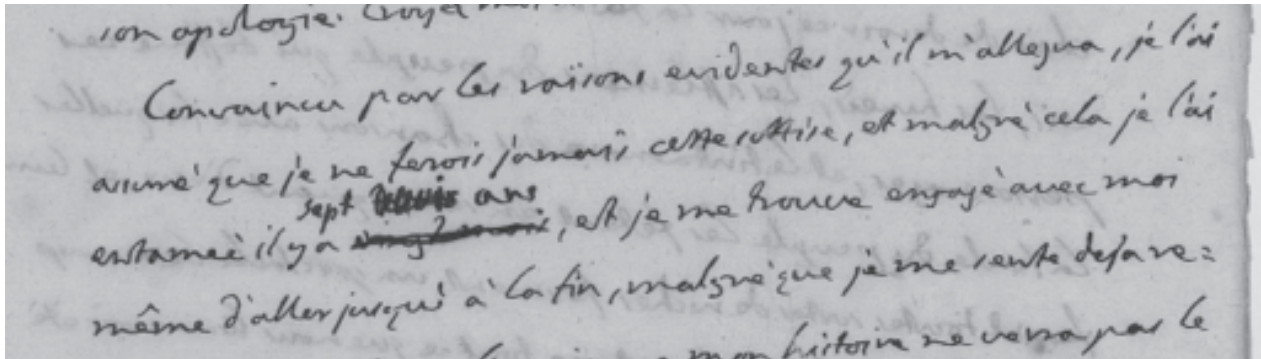 son apologie.
Convaincu par les raisons evidentes qu'il m'allegua, je l'ai
assuré que je ne ferois jamais cette sottise, et malgré cela je l'ai
sept ans
entameé il y a, et je me trouve engagé avec moi
même d'aller jusqu'à la fin, malgré que je me sente deja re=
mon histoire ne verra pas le